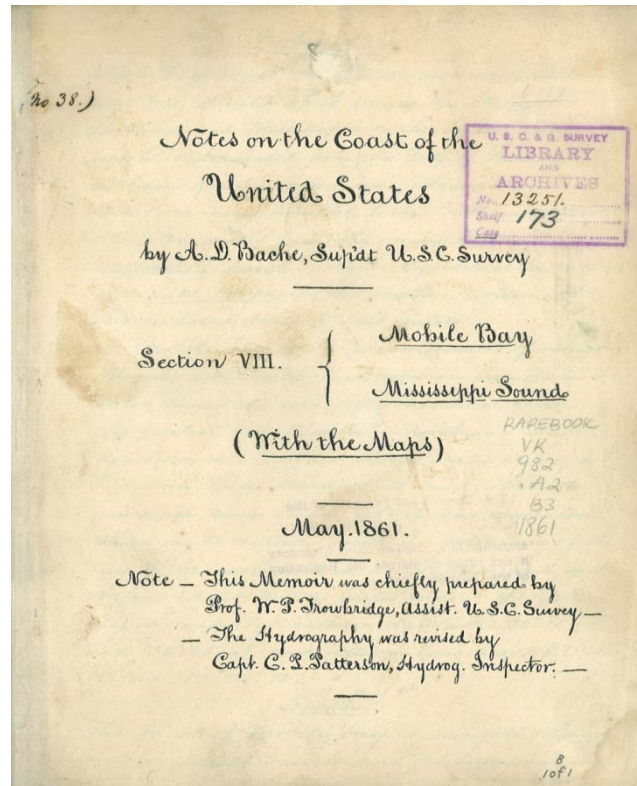 (No 38.)
Notes on the Coast of the
United States
by A. D. Bache, Sup'dt U.S.C. Survey
U. S. C. & G. SURVEY
LIBRARY
AND
ARCHIVES
No. 13251.
Shelf 173
Case
Section VIII.
Mobile Bay
Mississippi Sound
(With the Maps)
RAREBOOK
VK
982
.A2
B3
1861
May. 1861.
Note – This Memoir was chiefly prepared by
Prof. W. P. Trowbridge, Assist. U.S.C. Survey –
– The Hydrography was revised by
Capt. C. P. Patterson, Hydrog. Inspector. –
8
1 of 1